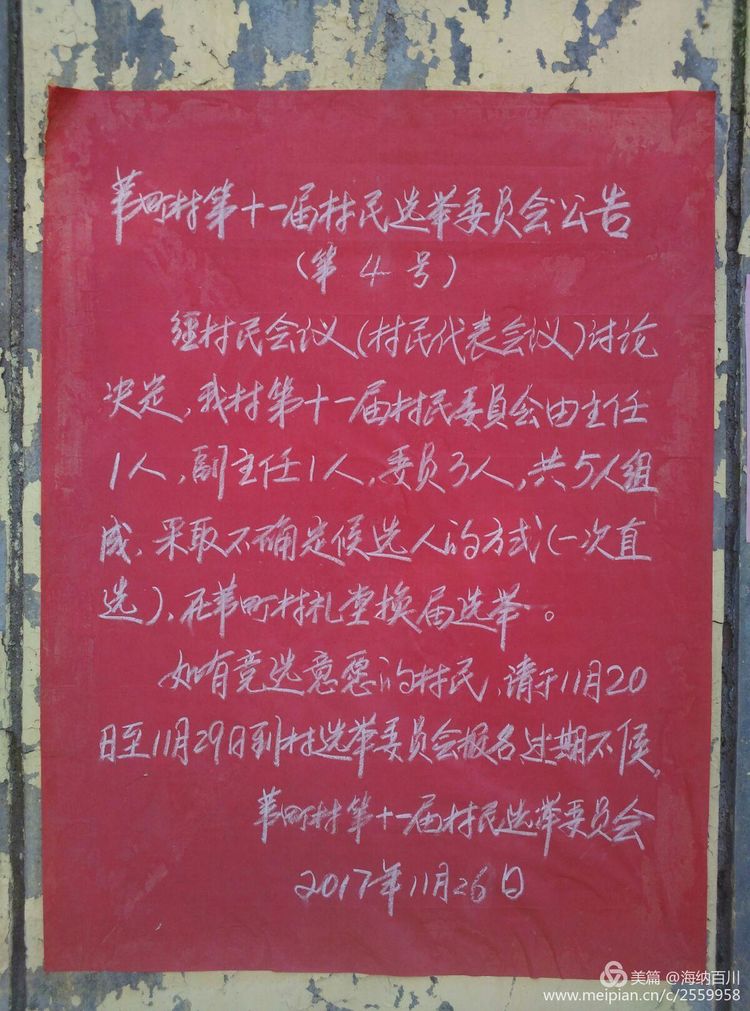 苇町村第十一届村民选举委员会公告
（第4号）
经村民会议（村民代表会议）讨论
决定，我村第十一届村民委员会由主任
1人，副主任1人，委员3人，共5人组
成，采取不确定候选人的方式（一次直
选），在苇町村礼堂换届选举。
如有竞选意愿的村民，请于11月20
日至11月29日到村选举委员会报名过期不候，
苇町村第十一届村民选举委员会
2017年11月26日
美篇 @海纳百川
www.meipian.cn/c/2559958